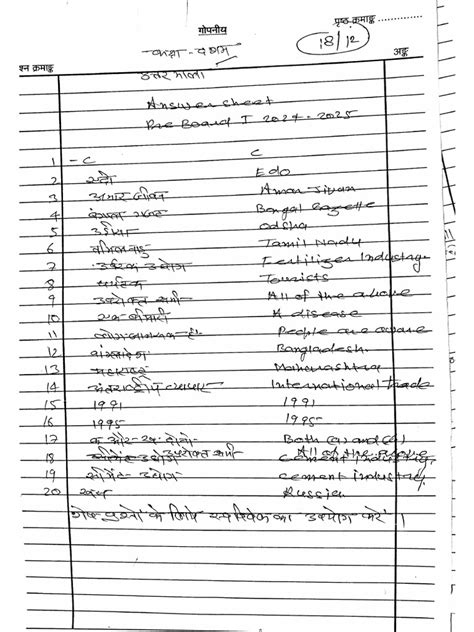 गोपनीय
पृष्ठ क्रमाङ्क ...............
18/12
कक्षा - दशम
अङ्क
प्रश्न क्रमाङ्क
उत्तरमाला
Answer sheet
Pre Board I 2024 - 2025
1 - C C
2 एदो Edo
3 अमार जीवन Amar Jivan
4 बंगाल गजट Bengal Gazette
5 उड़ीसा Odisha
6 तमिलनाडु Tamil Nadu
7 उर्वरक उद्योग Fertilizer Industry
8 पर्यटक Tourists
9 उपरोक्त सभी All of the above
10 एक बीमारी A disease
11 लोग जागरूक हैं People are aware
12 बांग्लादेश Bangladesh
13 महाराष्ट्र Maharashtra
14 अंतराष्ट्रीय व्यापार International Trade
15 1991 1991
16 1995 1995
17 क और ख दोनों Both (a) and
18 उपरोक्त सभी All of the above
19 सीमेंट उद्योग Cement industry
20 रूस Russia
शेष प्रश्नों के लिये स्वविवेक का उपयोग करें ।